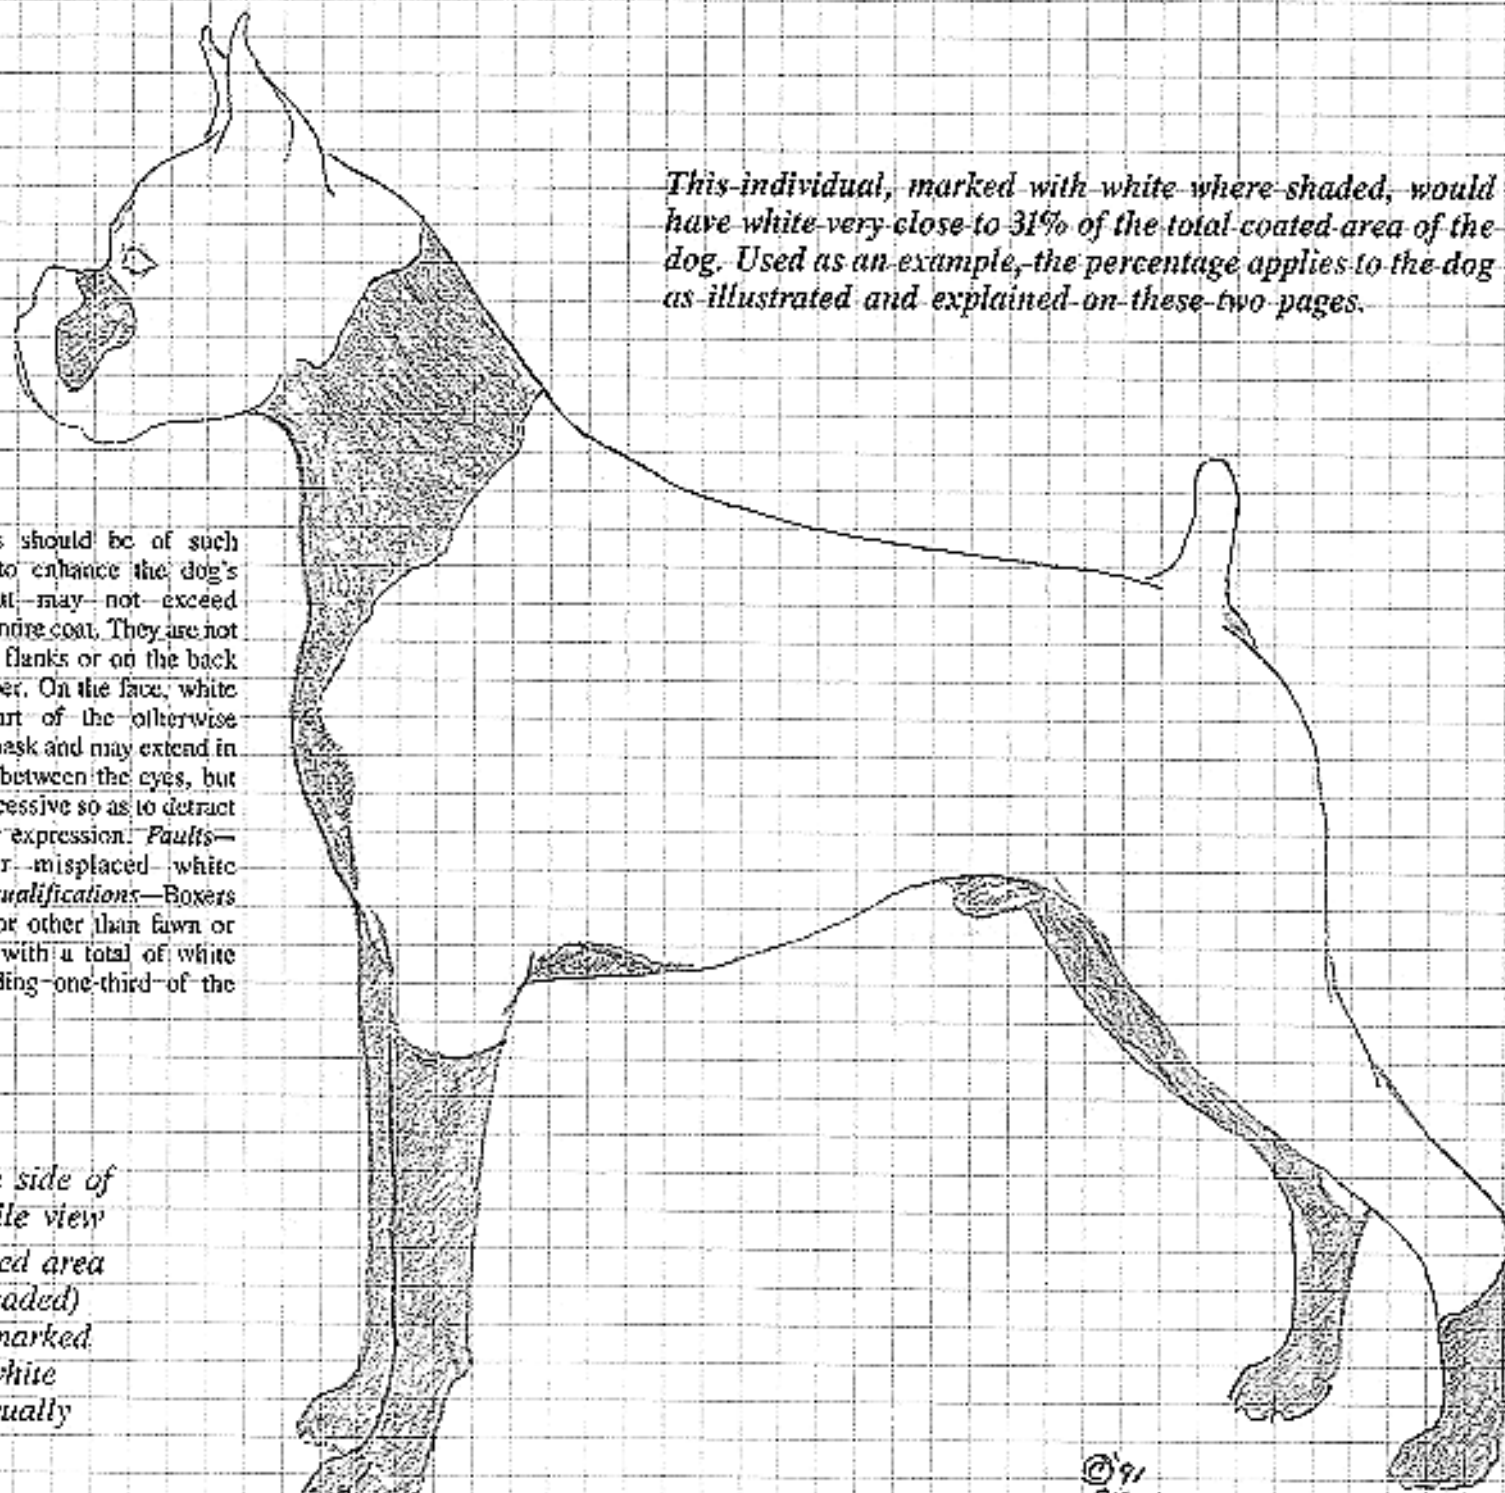 This individual, marked with white where shaded, would
have white very close to 31% of the total coated area of the
dog. Used as an example, the percentage applies to the dog
as illustrated and explained on these two pages.
s should be of such
to enhance the dog's
may not exceed
coat. They are not
flanks or on the back
On the face, white
of the otherwise
and may extend in
between the eyes, but
so as to detract
expression. Faults—
misplaced white
Boxers
other than fawn or
with a total of white
one-third of the
side of
view
area
marked
©'91